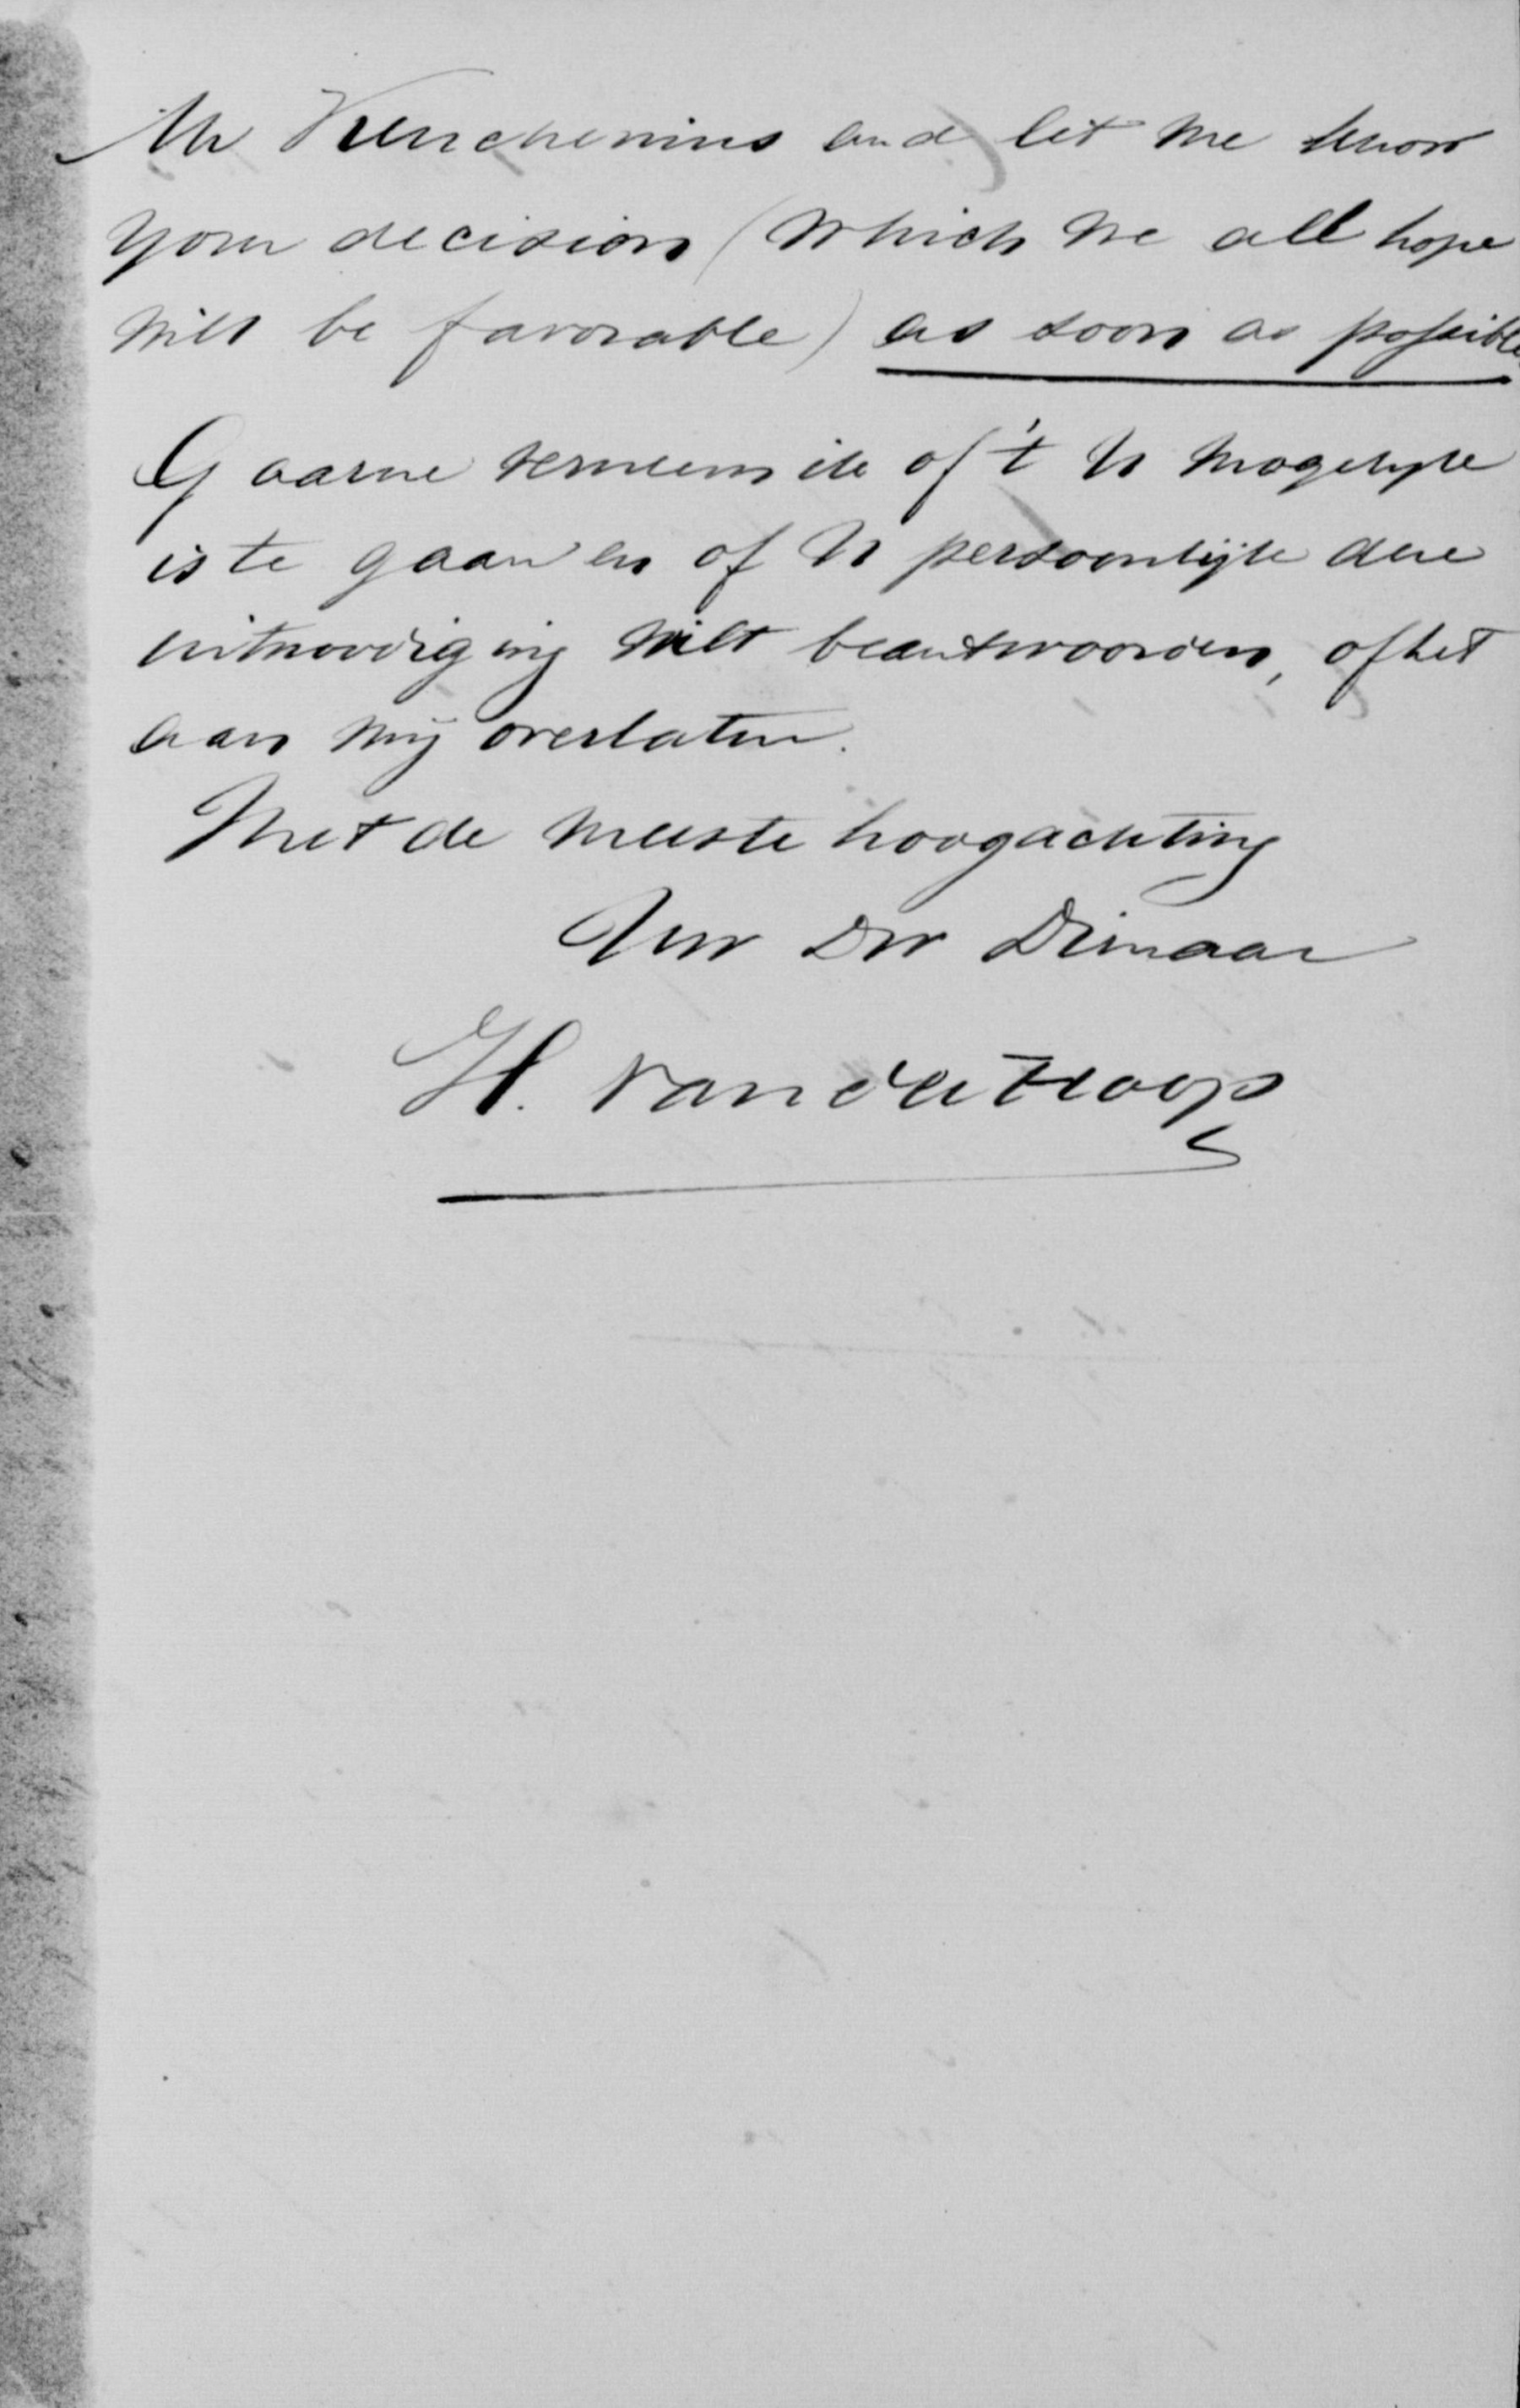 Mr Keuchenius and let me know
your decision (which we all hope
will be favorable) as soon as possible
Gaarne verneem ik of 't U mogelyk
is te gaan en of U persoonlijk deze
uitnoodiging wilt beantwoorden, of het
aan mij overlaten.
Met de meeste hoogachting
Uw Dw Dienaar
H. van der Hoop